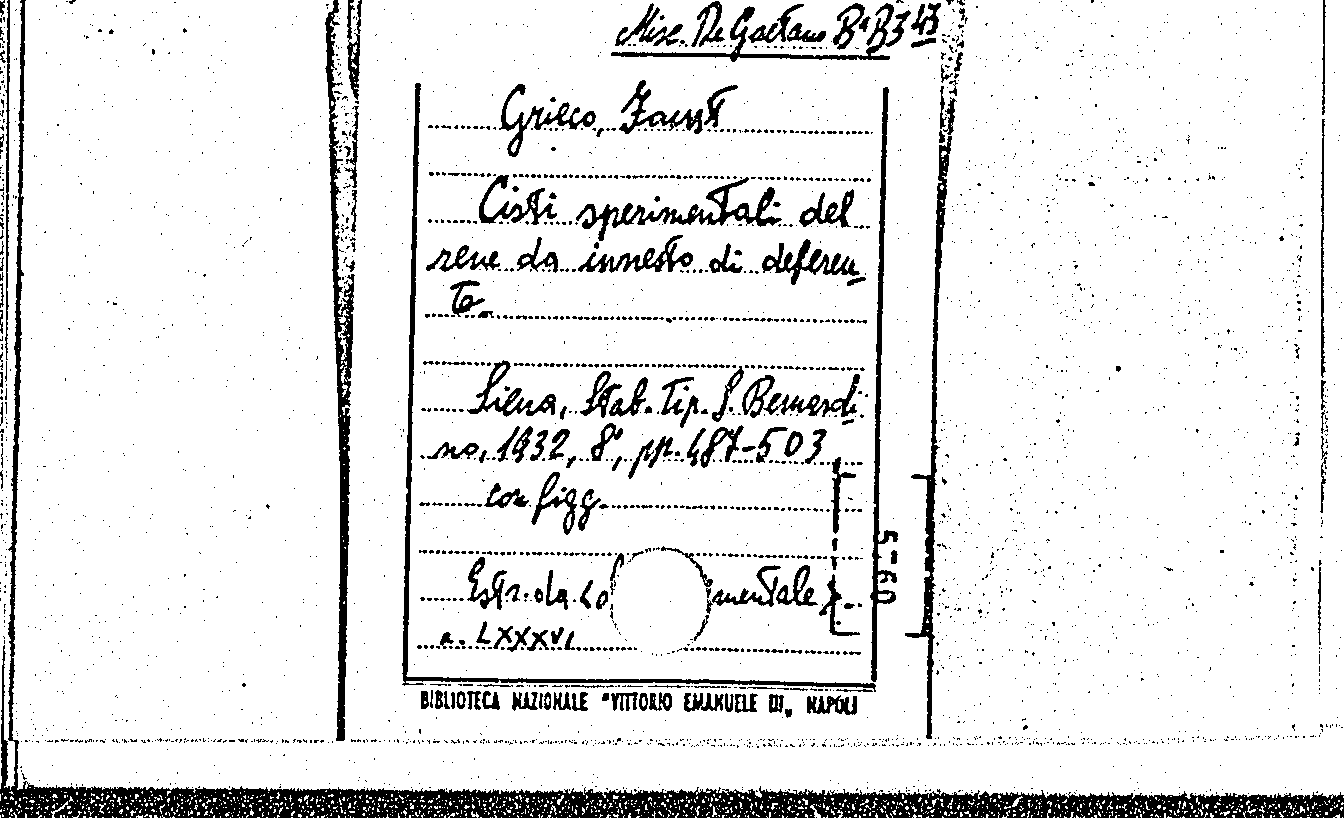 Misc. De Gaetano Bª B3 43
Grieco, Faust
Cisti sperimentali del
rene da innesto di deferen
te
Siena, Stab. Tip. S. Bernardi
no, 1932, 8°, pp. 487-503
con figg.
Estr. da "Lo mentale".
a. LXXXVI
5-60
BIBLIOTECA NAZIONALE "VITTORIO EMANUELE III" NAPOLI